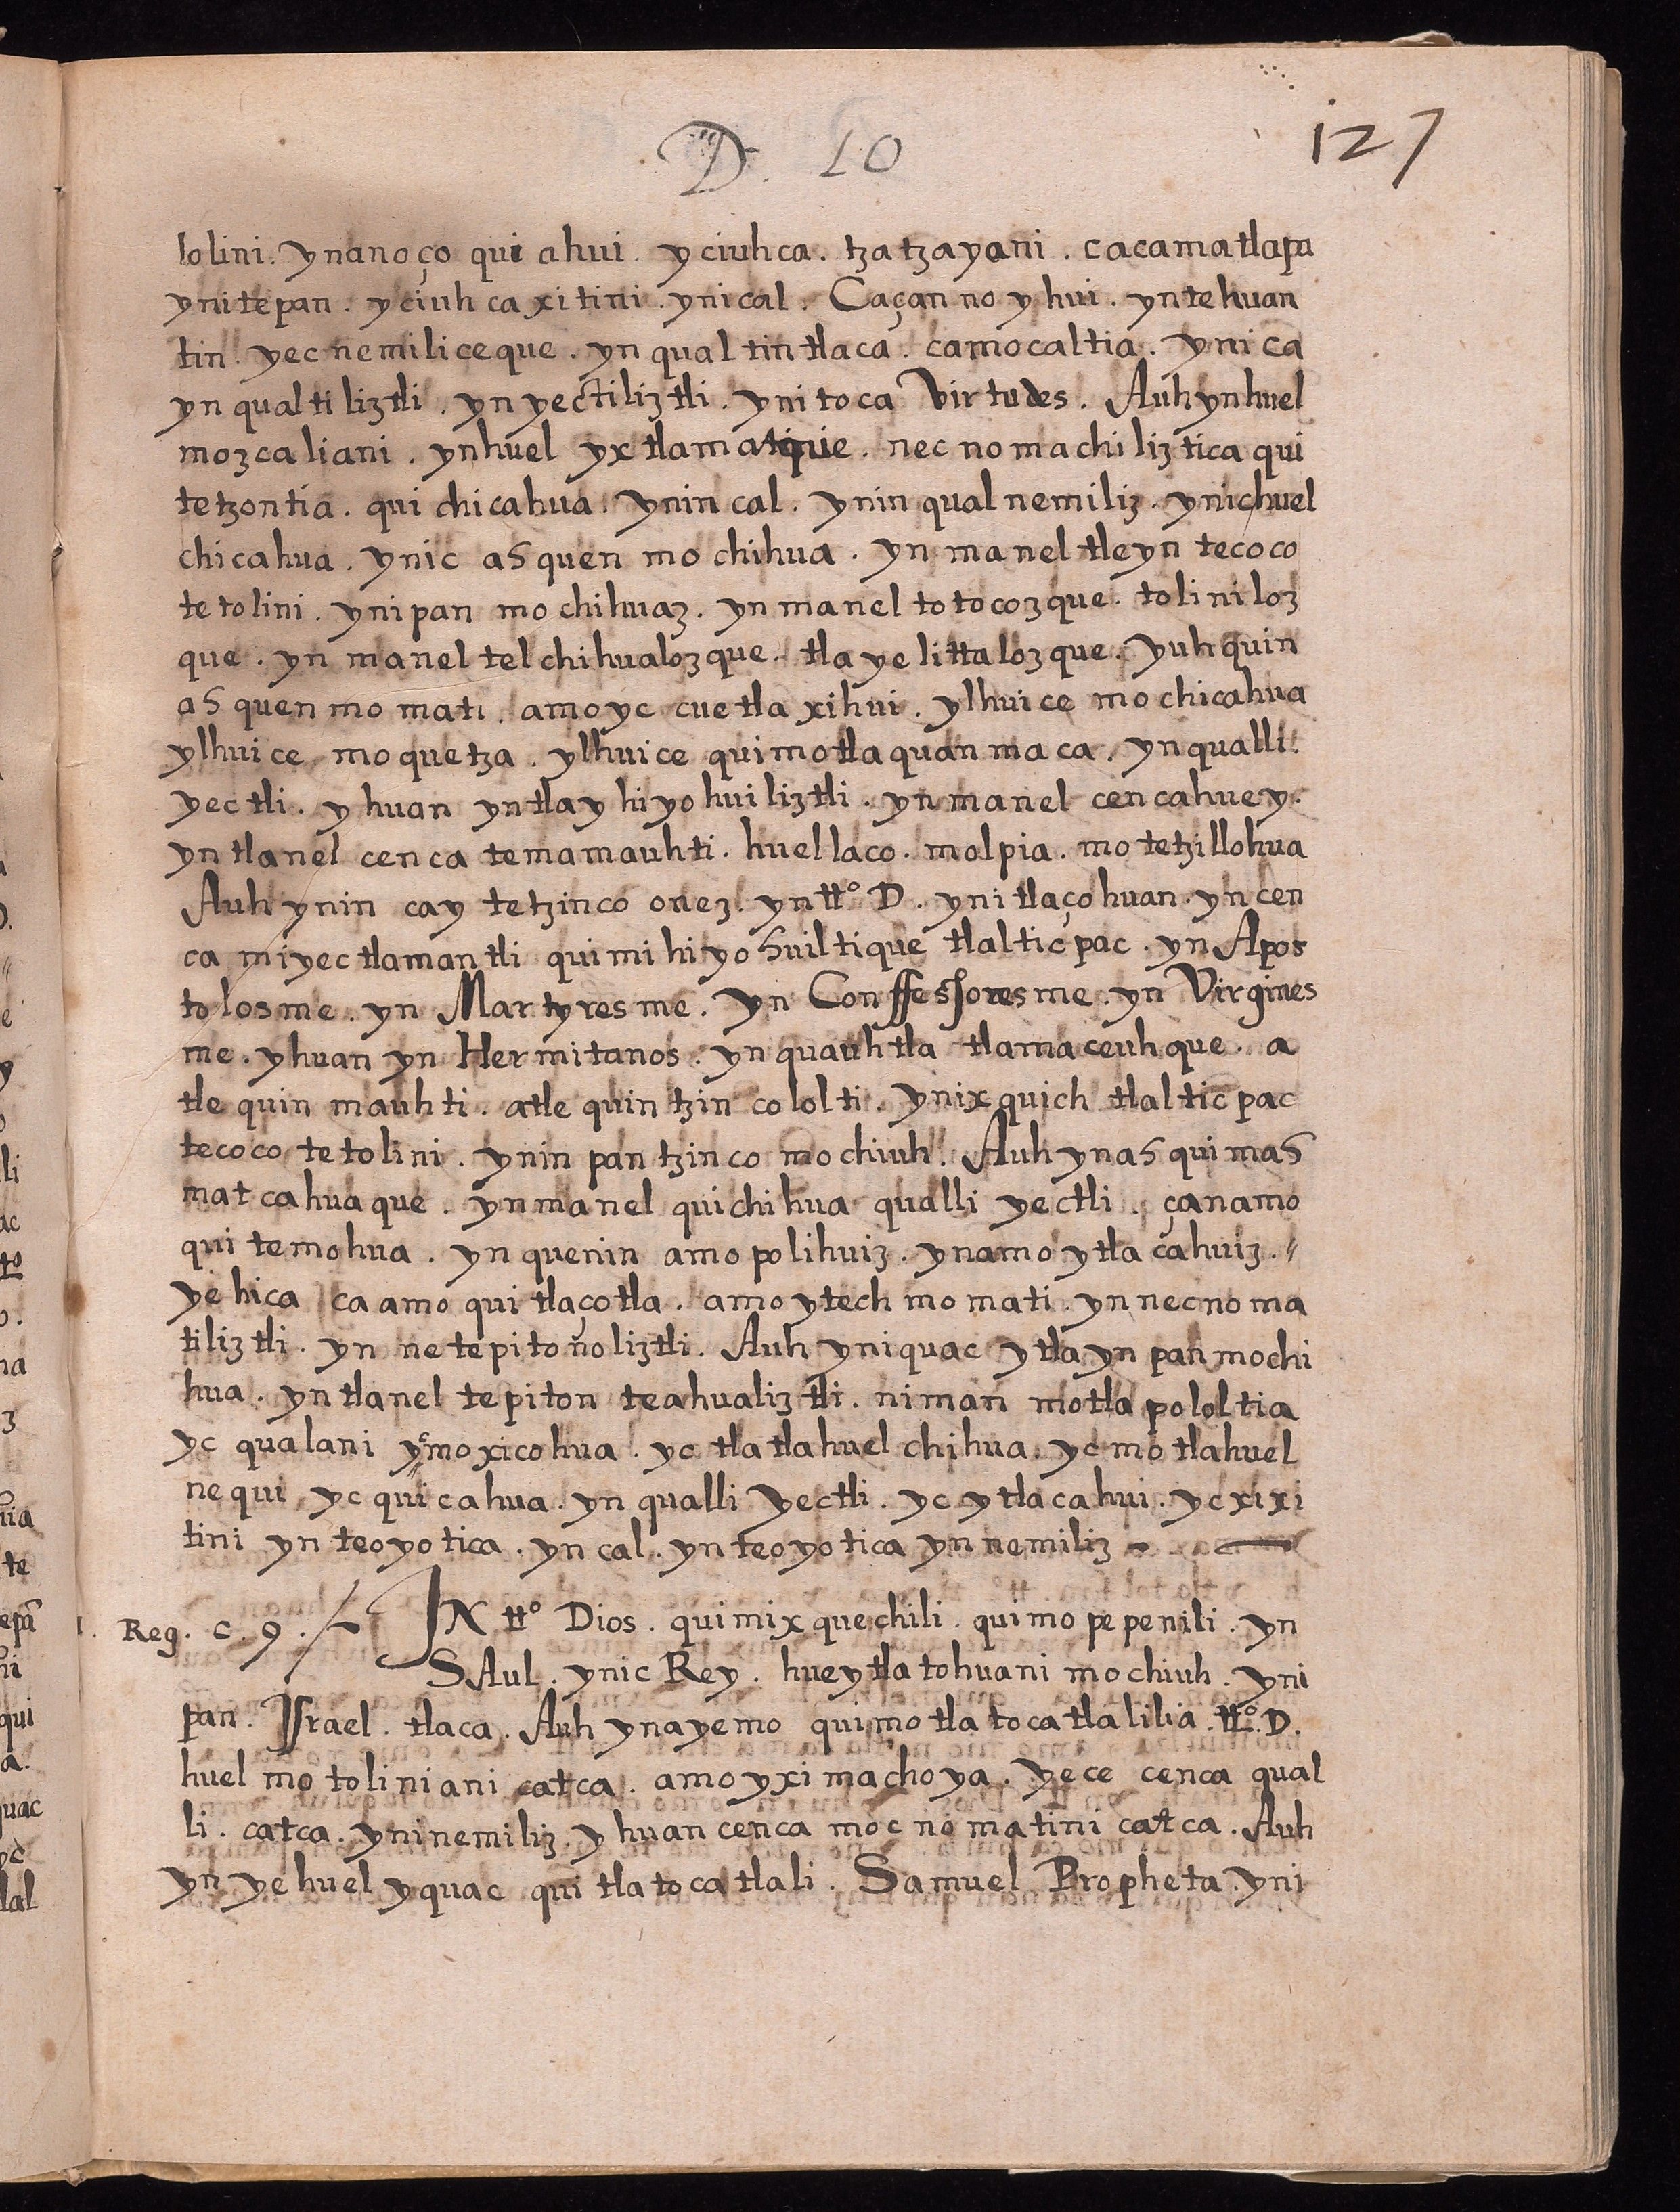 D. 10
127
lolini. ynanoço qui ahui. yciuhca. tzatzayani. cacamatlapa
ynitepan. yciuhcaxitini. ynical. Caçan no yhui. yntehuan
tin. yecnemiliceque. yn qualtintlaca. camocaltia. ynica
yn qualtiliztli. yn yectiliztli. ynitoca Virtudes. Auh ynhuel
mozcaliani. ynhuel yxtlamatque. necnomachiliztica qui
tetzontia. quichicahua. ynin cal. ynin qualnemiliz. ynichuel
chicahua. ynic asquen mochihua. yn manel tleyn tecoco
tetolini. ynipan mochihuaz. yn manel totocozque. toliniloz
que. yn manel telchihualozque. tlayelittalozque. yuhquin
asquen momati. amoyc cuetlaxihui. ylhuice mochicahua
ylhuice moquetza. ylhuice quimotlaquanmaca. yn qualli.
yectli. yhuan yntlayhiyohuiliztli. yn manel cencahuey.
yntlanel cenca temamauhti. huellaco. molpia. motetzillohua
Auh ynin cay tetzinco onez. yn tt.º D. ynitlaçohuan. yn cen
ca miyectlamantli quimihiyohuiltique tlalticpac. yn Apos
tolosme. yn Martyresme. yn Conffessoresme. yn Virgines
me. yhuan yn Hermitanos. yn quauhtla tlamaceuhque. a
tle quinmauhti. atle quintzincololti. ynixquich tlalticpac
tecoco tetolini. yninpantzinco mochiuh. Auh ynas quimas
matcahuaque. yn manel quichihua qualli yectli. çanamo
quitemohua. yn quenin amo polihuiz. ynamo ytlacahuiz. //
yehica ca amo quitlaçotla. amo ytech momati. yn necnoma
tiliztli. yn netepitonoliztli. Auh yniquac ytla ynpan mochi
hua. yntlanel tepiton teahualiztli. niman motlapololtia
yc qualani yc moxicohua. yc tlatlahuelchihua. yc motlahuel
nequi yc quicahua. yn qualli yectli. yc ytlacahui. yc xixi
tini yn teoyotica. yn cal. yn teoyotica yn nemiliz
1. Reg. c. 9. IN tt.º Dios. quimixquechili. quimopepenili. yn
SAul. ynic Rey. hueytlatohuani mochiuh. yni
pan. Israel. tlaca. Auh ynayemo quimotlatocatlalilia. tt.º D.
huel motoliniani catca. amo yximachoya. yece cenca qual
li. catca. yninemiliz. yhuan cenca mocnomatini catca. Auh
yn yehuel yquac quitlatocatlali. Samuel Propheta. yni